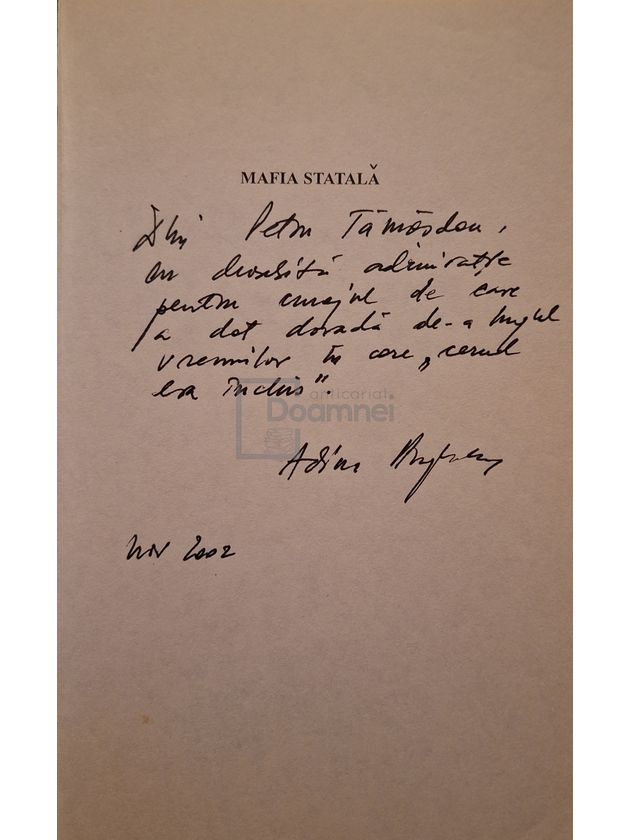 MAFIA STATALĂ
Petru Tămăsdan,
cu deosebită admirație
pentru curajul de care
a dat dovadă de-a lungul
vremilor în care „cerul
era închis”.
anticariat
Doamnei
Nov 2002